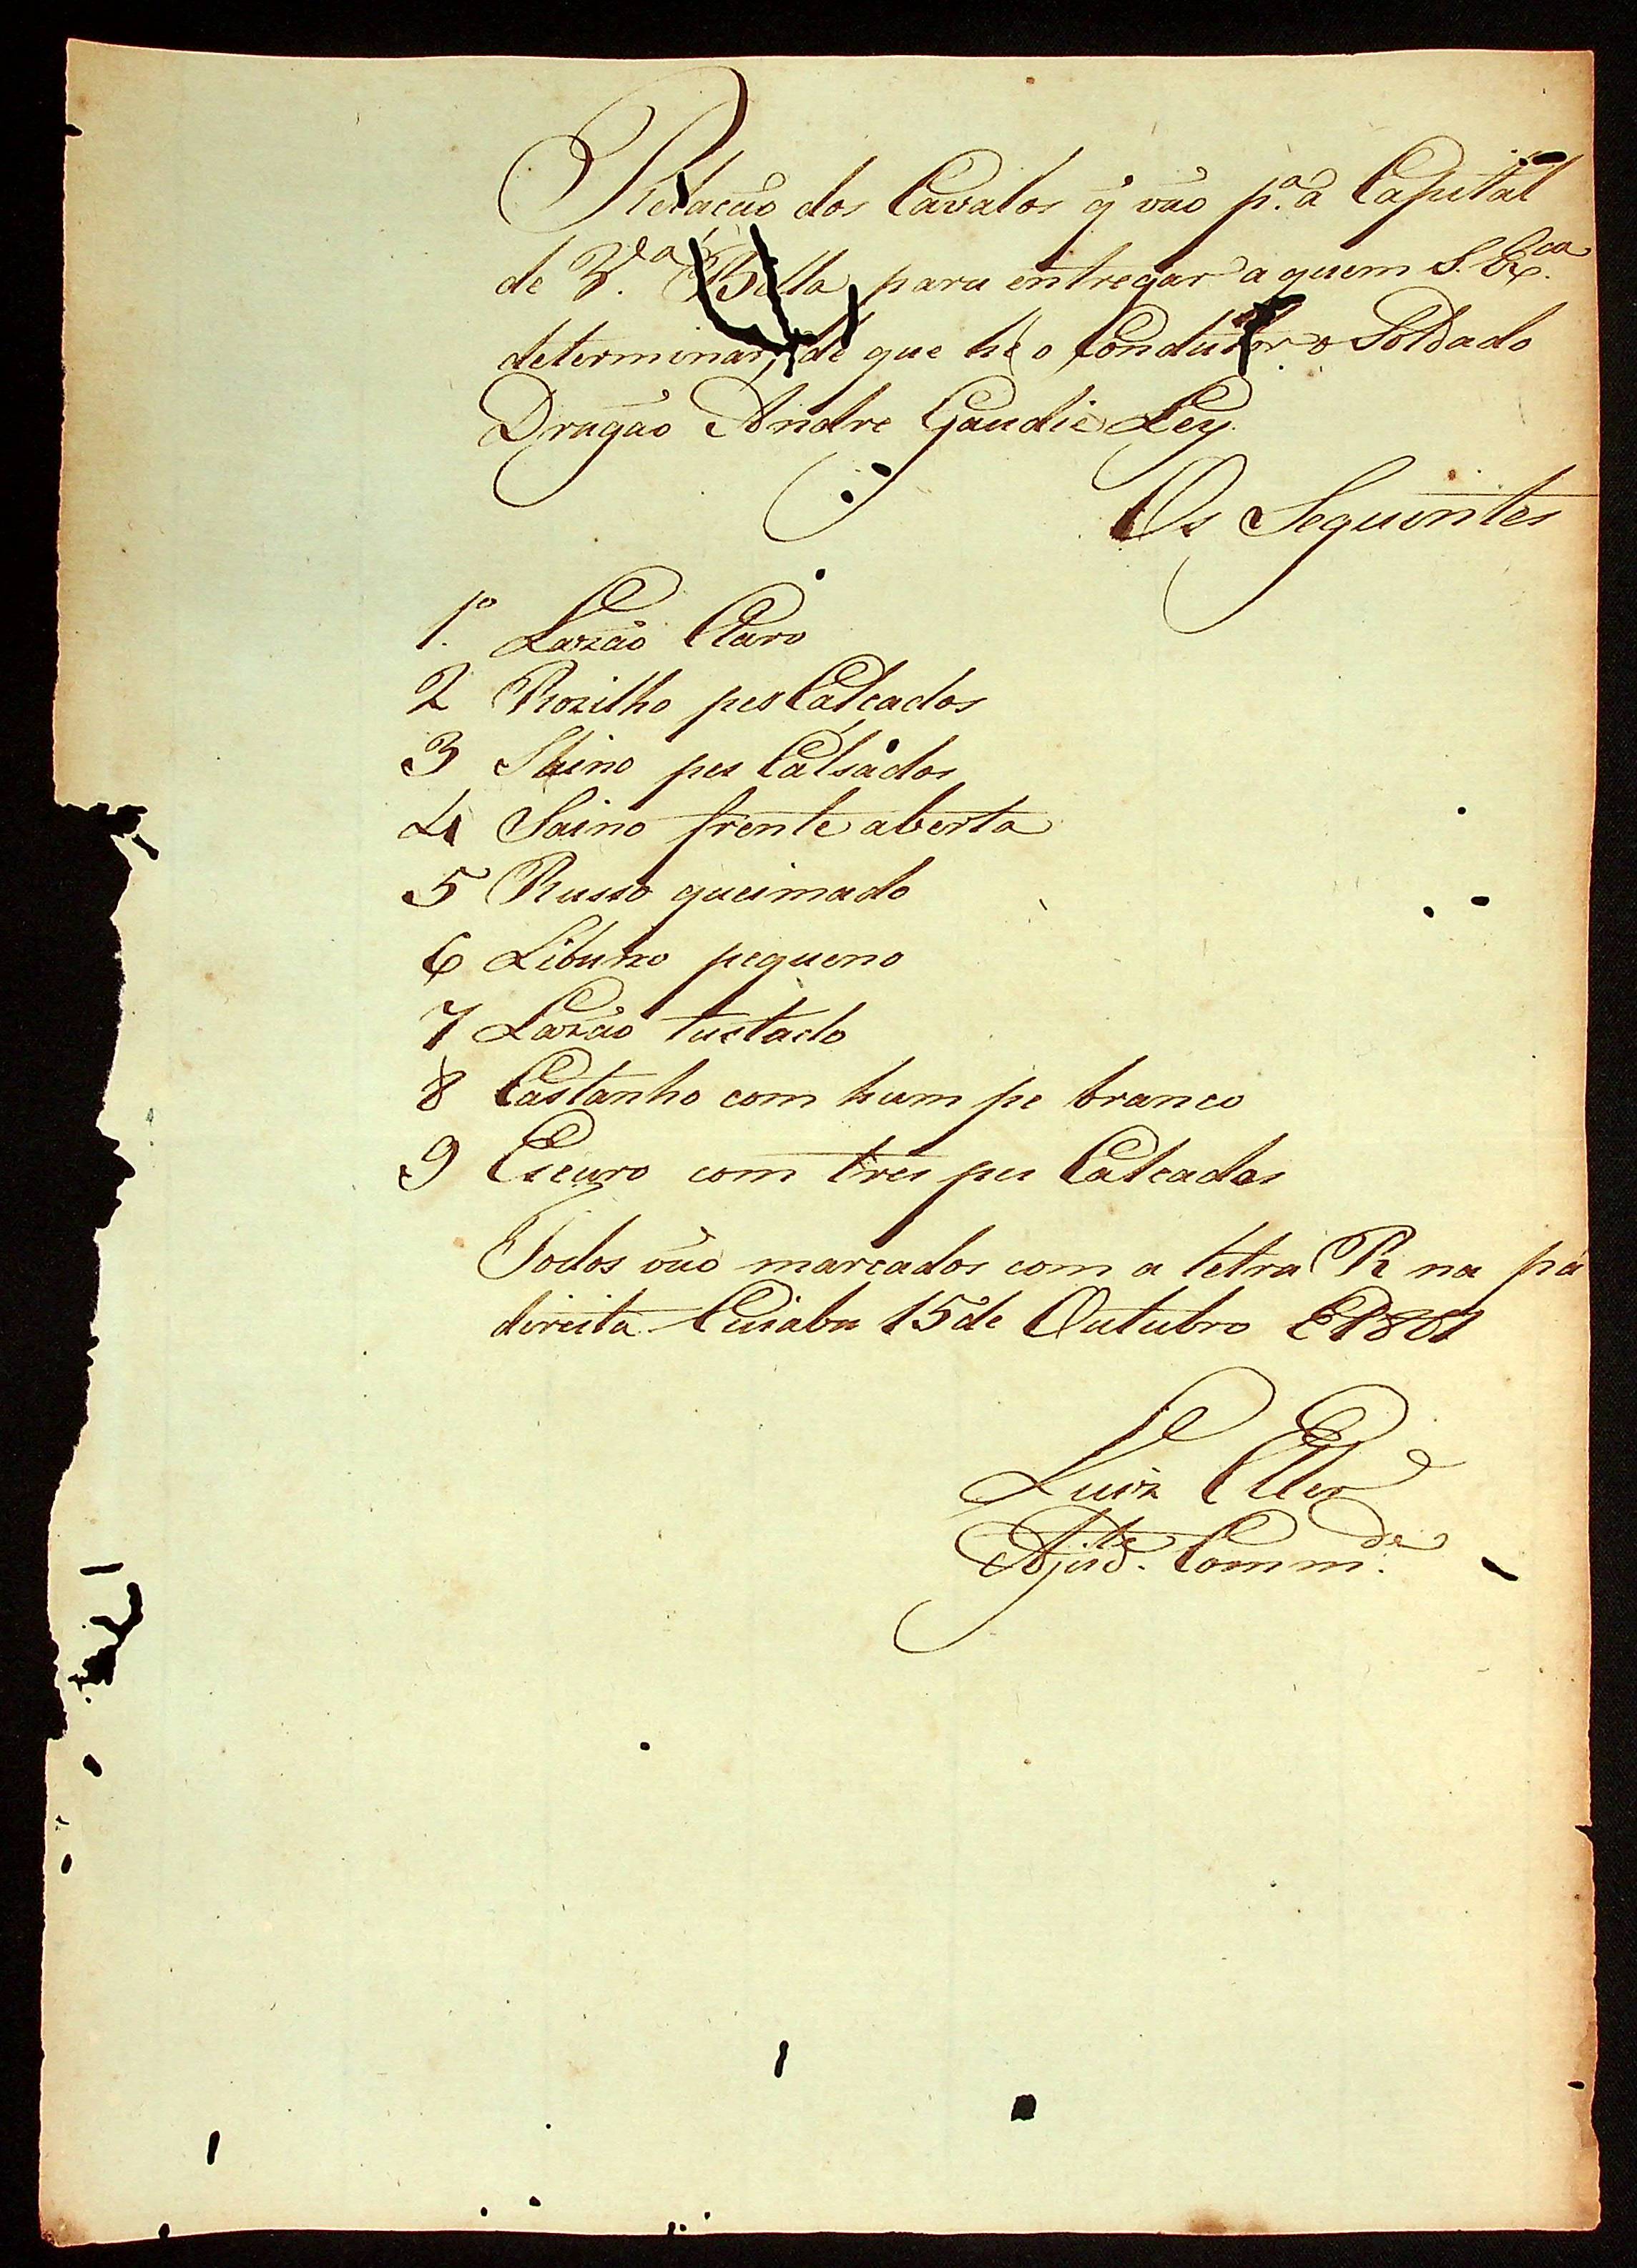 Relacaõ dos Cavalos q̃ vaõ p.ª a Capital
de V.ª Bella, para entregar a quem S. Ex.ca
determinar, de que he o Condutor o Soldado
Dragaõ Andre Gaudie Ley
Os Seguintes
1.º Lazaõ Claro
2 Rozilho pes Calcados
3 Saino pes Calsados
4 Saino frente aberta
5 Russo queimado
6 Libuno pequeno
7 Lazaõ tustado
8 Castanho com hum pe branco
9 Escuro com tres pes Calcados
Todos vaõ marcados com a letra R na pá
direita Cuiaba 15 de Outubro 1801
Luiz Eller
Ajud.te Comm.de